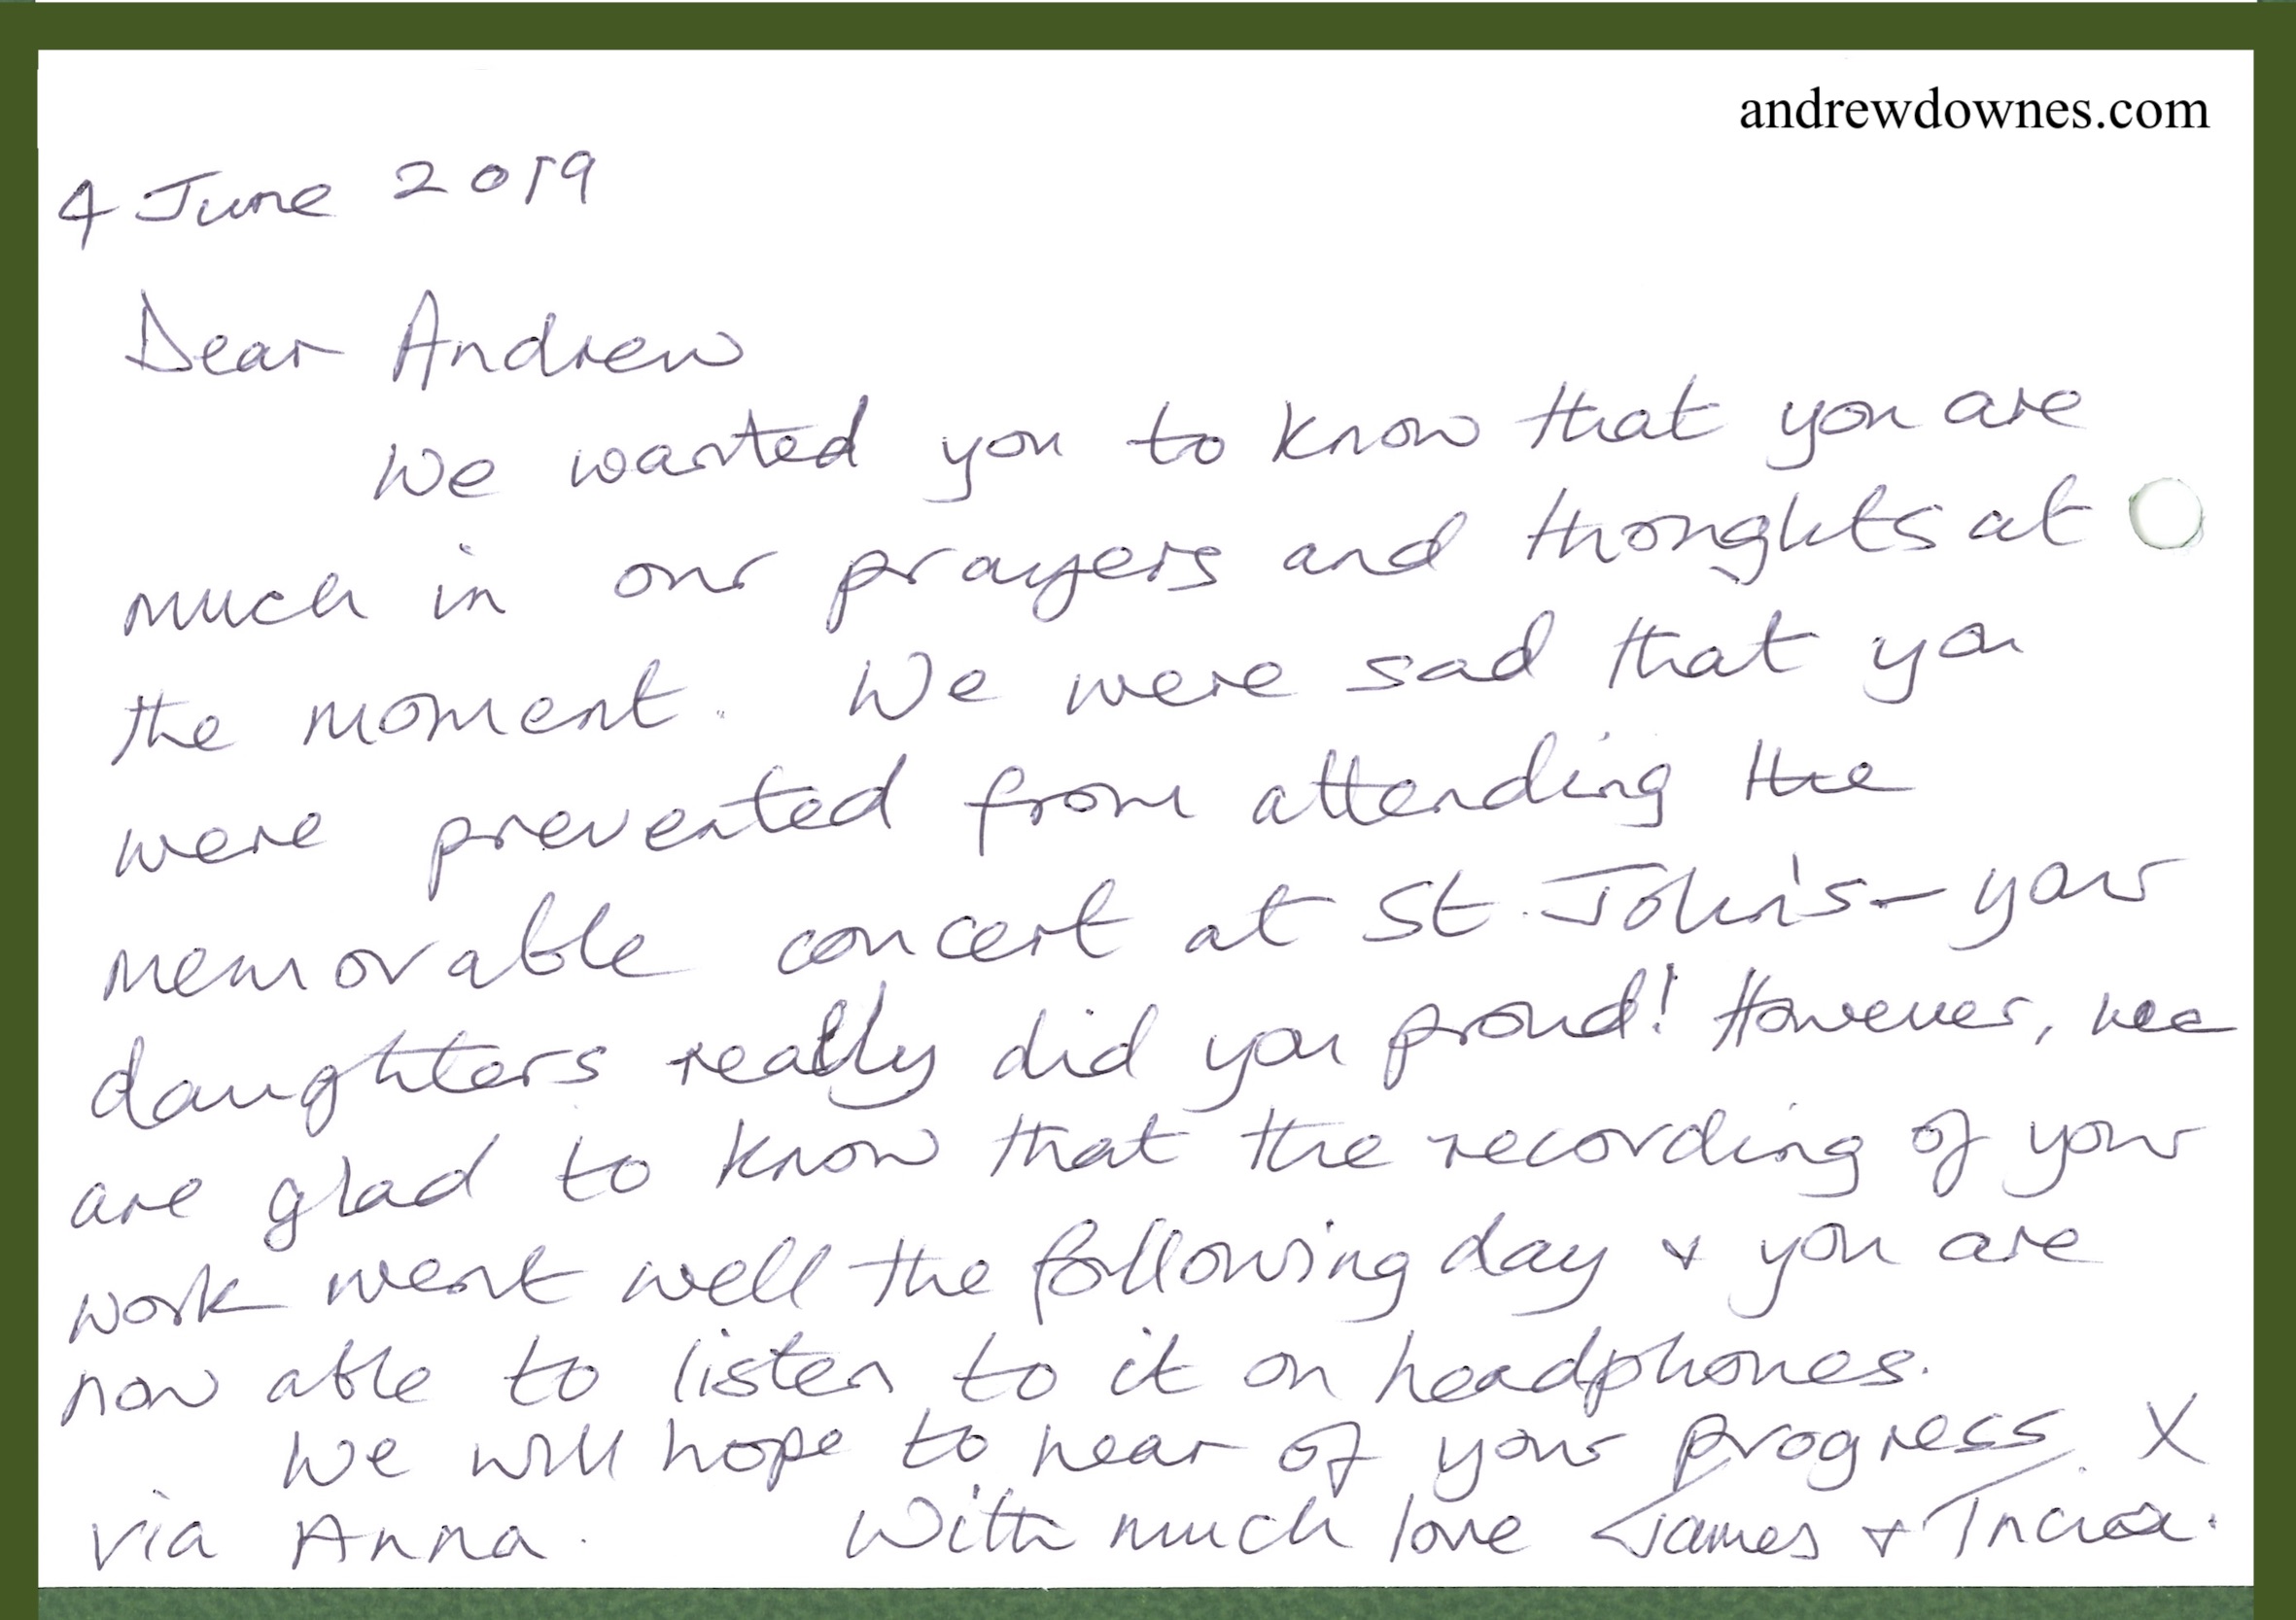 andrewdownes.com
4 June 2019
Dear Andrew
We wanted you to know that you are
much in our prayers and thoughts at
the moment. We were sad that you
were prevented from attending the
memorable concert at St. John's - your
daughters really did you proud! However, we
are glad to know that the recording of your
work went well the following day + you are
now able to listen to it on headphones.
We will hope to hear of your progress. X
via Anna. With much love James +